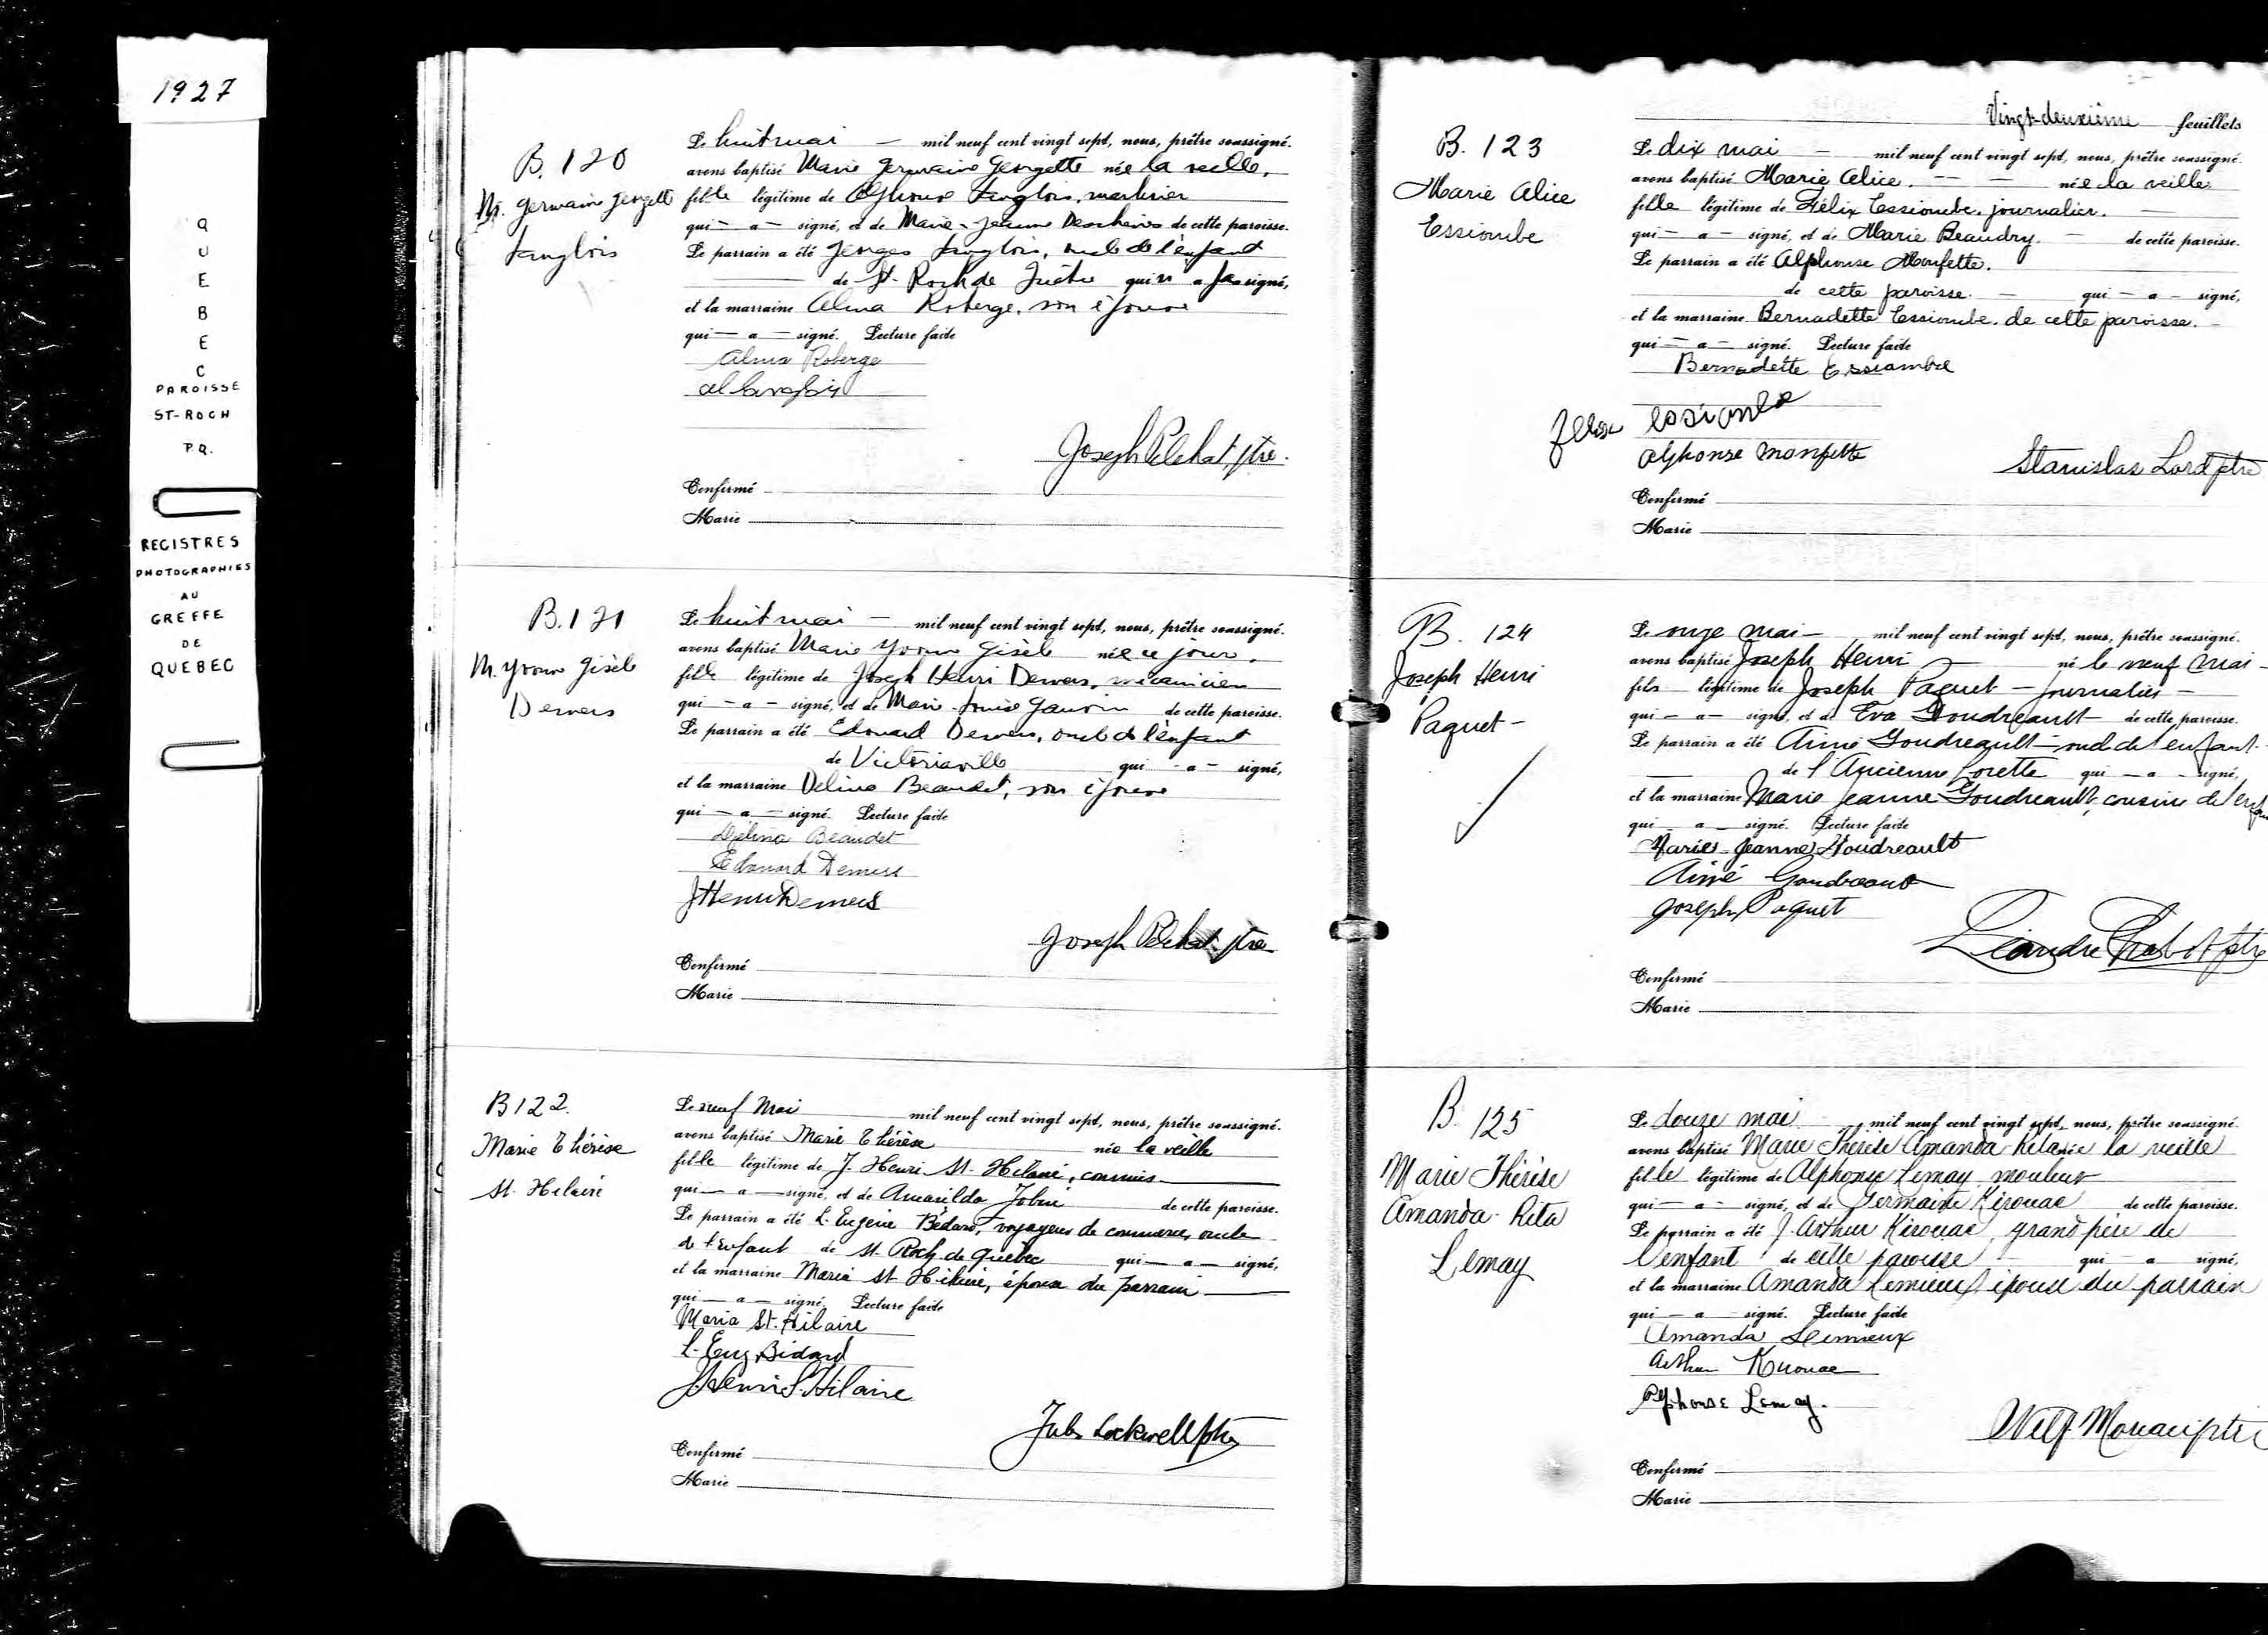 1927
QUEBEC
PAROISSE
ST-ROCH
P.Q.
REGISTRES
PHOTOGRAPHIES
AU
GREFFE
DE
QUEBEC
B. 120
M. Germaine Georgette
Langlois
Le huit mai — mil neuf cent vingt sept, nous, prêtre soussigné.
avons baptisé Marie Germaine Georgette née la veille,
fille légitime de Alphonse Langlois,
qui — a — signé, et de Marie-Jeanne de cette paroisse.
Le parrain a été Georges Langlois, oncle de l'enfant
de St-Roch de qui n'a pas signé,
et la marraine Alma Roberge, son épouse
qui — a — signé. Lecture faite
Alma Roberge
Al Langlois
Joseph Pelchat, ptre.
Confirmé
Marie
B. 121
M. Yvonne Gisèle
Demers
Le huit mai — mil neuf cent vingt sept, nous, prêtre soussigné.
avons baptisé Marie Yvonne Gisèle née ce jour,
fille légitime de Joseph Henri Demers, mécanicien
qui — a — signé, et de Marie-Louise Gauvin de cette paroisse.
Le parrain a été Edouard Demers, oncle de l'enfant
de Victoriaville qui — a — signé,
et la marraine Délina Beaudet, son épouse
qui — a — signé. Lecture faite
Délina Beaudet
Edouard Demers
J Henri Demers
Joseph Pelchat ptre
Confirmé
Marie
B 122.
Marie Thérèse
St. Hilaire
Le neuf Mai mil neuf cent vingt sept, nous, prêtre soussigné.
avons baptisé Marie Thérèse née la veille
fille légitime de J. Henri St-Hilaire, commis
qui — a — signé, et de Amarilda Jobin de cette paroisse.
Le parrain a été L. Eugène Bédard, voyageur de commerce, oncle
de l'enfant de St. Roch de Québec qui — a — signé,
et la marraine Maria St-Hilaire, épouse du parrain
qui — a — signé. Lecture faite
Maria St. Hilaire
L. Eug Bédard
J. Henri St. Hilaire
Jules Lockwell ptre
Confirmé
Marie
Vingt-deuxième feuillets
B. 123
Marie Alice
Essiombe
Le dix mai — mil neuf cent vingt sept, nous, prêtre soussigné.
avons baptisé Marie Alice. — née la veille.
fille légitime de Félix Essiombe, journalier. —
qui — a — signé, et de Marie Beaudry. — de cette paroisse.
Le parrain a été Alphonse Monfette.
de cette paroisse. — qui — a — signé,
et la marraine Bernadette Essiombe. de cette paroisse. —
qui — a — signé. Lecture faite
Bernadette Essiambre
Alphonse Monfette
Stanislas Lord ptre
Confirmé
Marie
B. 124
Joseph Henri
Paquet —
Le onze mai — mil neuf cent vingt sept, nous, prêtre soussigné.
avons baptisé Joseph Henri né le neuf mai —
fils légitime de Joseph Paquet — journalier —
qui — a — signé, et de Eva Goudreault — de cette paroisse.
Le parrain a été Aimé Goudreault — oncle de l'enfant —
de l'Ancienne Lorette qui — a — signé,
et la marraine Marie Jeanne Goudreault, cousine de l'enfant
qui — a — signé. Lecture faite
Marie-Jeanne Goudreault
Aimé Goudreault
Joseph Paquet
Léandre Chabot ptre
Confirmé
Marie
B. 125
Marie Thérèse
Amanda-Rita
Lemay
Le douze mai mil neuf cent vingt sept, nous, prêtre soussigné.
avons baptisé Marie Thérèse Amanda-Rita née la veille
fille légitime de Alphonse Lemay mouleur
qui — a — signé, et de Germaine Kérouac de cette paroisse.
Le parrain a été J. Arthur Kérouac, grand père de
l'enfant de cette paroisse qui — a — signé,
et la marraine Amanda Lemieux épouse du parrain
qui — a — signé. Lecture faite
Amanda Lemieux
Arthur Kérouac
Alphonse Lemay.
Confirmé
Marie